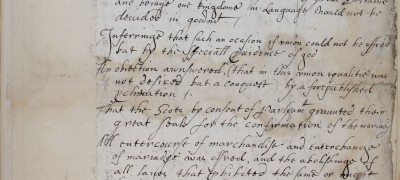 and beinge one kingdome in Language should not be
devided in
Inferringe that such an ocasion of union could not be offred
but by the speciall Providence of god
An obiection awnswered (that in this union equalitie was
not desired but a conquest) by a
That the Scots by consent of Parliam graunted their
great seale for the confirmation of the mariage
All entercourse of marchandise and interchange
of mariage was offred, and the abolishinge of
all lawes that phibited the same or might